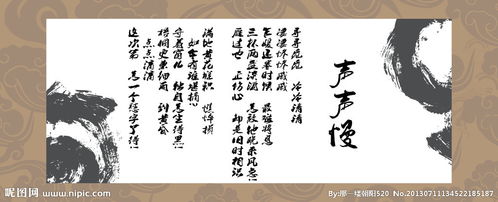 声声慢
寻寻觅觅 冷冷清清
凄凄惨惨戚戚
乍暖还寒时候 最难将息
三杯两盏淡酒 怎敌他晚来风急
雁过也 正伤心 却是旧时相识
满地黄花堆积 憔悴损
如今有谁堪摘
守着窗儿 独自怎生得黑!
梧桐更兼细雨 到黄昏
点点滴滴
这次第 怎一个愁字了得!
昵图网 www.nipic.com
By:那一楼朝阳520 No.20130711134522185187